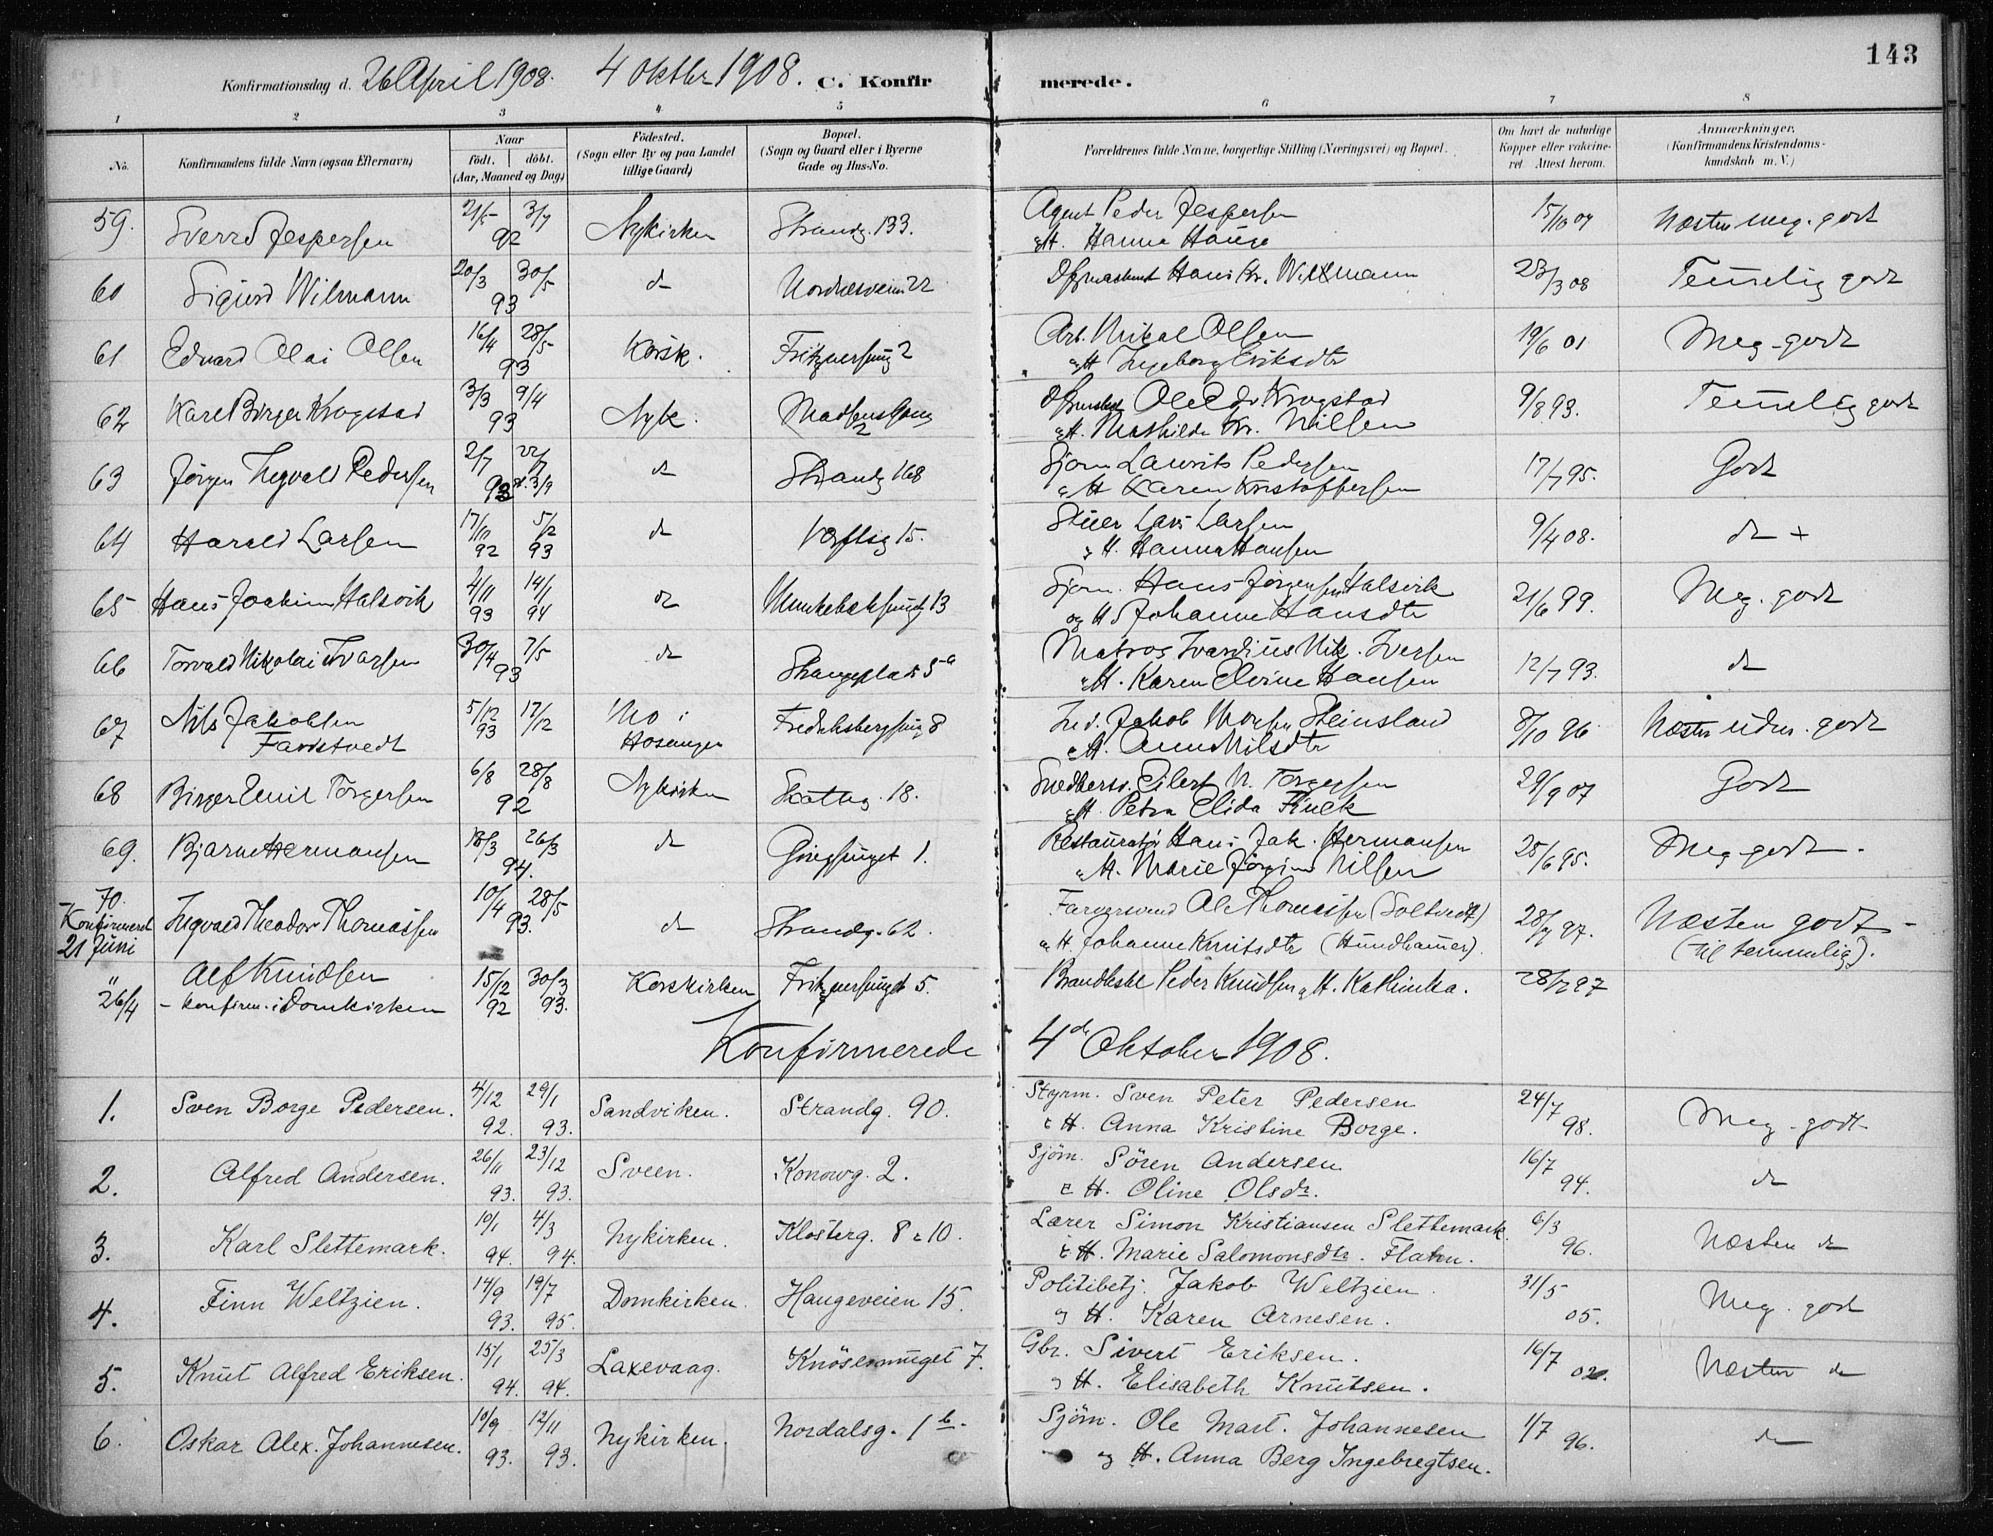 143
Konfirmationsdag d. 26 April 1908. 4 Oktbr 1908. C. Konfirmerede.
1 2 3 4 5 6 7 8
No. Konfirmandens fulde Navn (ogsaa Efternavn) Naar født. døbt. (Aar, Maaned og Dag) Fødested. (Sogn eller By og paa Landet tillige Gaard) Bopæl. (Sogn og Gaard eller i Byerne Gade og Hus-No. Forældrenes fulde Navne, borgerlige Stilling (Næringsvei) og Bopæl. Om havt de naturlige Kopper eller vakcineret Attest herom. Anmærkninger. (Konfirmandens Kristendomskundskab m. V.)
59. Sverre Jespersen 21/5 3/7 92 Nykirken Strandg. 133. Agent Peder Jespersen 15/10 07 Næsten meg. godt
& H. Hanna Hauge
60 Sigurd Wilmann 20/3 30/5 93 do Nordnesveien 22 Hans Kr. Willmann 23/3 08 Temmelig godt
61 Edvard Olai Olsen 16/4 28/5 93 Korsk. Fritznersmug 2 Arb. Mikal Olsen 19/6 01 Meg. godt
& H. Ingeborg Eriksdtr
62 Karl Birger Krogstad 3/3 9/4 93 Nyk. Madsens Gang 2 Ole Edv Krogstad 9/8 93. Temmelig godt
& H. Mathilde Kr. Nilsen
63 Jørgen Ingvald Pedersen 2/7 22/7 93 st. 3/9 do Strandg 168 Sjom Laurits Pedersen 17/7 95. Godt
& H Karen Kristoffersen
64 Harald Larsen 17/11 92 5/2 93 do Værftsg 15. Stuer Lars Larsen 9/4 08. do +
& H. Hanna Hansen
65 Hans Joakim Halsvik 4/11 93 14/1 94 do Munkebæksmug 13 Sjom. Hans Jørgensen Halsvik 21/6 99. Meg. godt
og H Johanne Hansdtr
66 Torvald Nikolai Ivarsen 30/4 7/5 93 do Skangeplads 5a Matros Ivardius Nik. Iversen 12/7 93. do
& H. Karen Elvine Hansen
67 Nils Jakobsen Farestvedt 5/12 93 17/12 Mo i Hosanger Fredriksbergsmug 8 Jakob Monsen Steinsland 8/10 96 Næsten udm. godt
& H. Anna Nilsdtr
68 Birger Emil Torgersen 6/8 28/8 92 Nykirken Skotteg. 18. Snedkersv. Eilert N. Torgersen 29/9 07 Godt
& H. Petra Elida Kuck
69. Bjarne Hermansen 18/3 26/3 94. do Griegsmuget 1. Restauratør Hans Jak. Hermansen 25/6 95. Meg. godt.
& H. Marie Jørgine Nilsen
70. Konfirmeret 21 Juni Ingvald Theodor Thomassen 10/4 28/5 93. do Strandg. 62. Farversvend Ole Thomassen (Soltvedt) 28/7 97. Næsten godt - (til temmelig).
& H. Johanne Knutsdtr (Hundhammer).
" 26/4 Alf Knudsen - konfirm. i Domkirken 15/12 92 30/3 93. Korskirken Fritznersmuget 5. Peder Knudsen & H. Kathinka. 28/7 97
Konfirmerede 4de Oktober 1908.
1. Sven Borge Pedersen. 4/12 92. 29/1 93. Sandviken. Strandg. 90. Styrm. Sven Peter Pedersen 24/7 98. Meg. godt
& H. Anna Kristine Borge.
2. Alfred Andersen. 26/11 93. 23/12 93. Sveen. Konowg. 2. Sjöm. Sören Andersen 16/7 94. do
& H. Oline Olsdr.
3. Karl Slettemark. 10/1 94. 4/3 94. Nykirken. Klosterg. 8 & 10. Lærer Simon Kristiansen Slettemark. 6/3 96. Næsten do
& H. Marie Salomonsdtr. Flaten.
4. Finn Weltzien. 14/9 93. 19/7 95. Domkirken. Haugeveien 15. Politibetj. Jakob Weltzien. 31/5 05. Meg. godt
og H. Karen Arnesen.
5. Knut Alfred Eriksen. 15/1 94. 25/3 94. Laxevaag. Knösesmuget 7. Gbr. Sivert Eriksen. 16/7 02. Næsten do
og H. Elisabeth Knutsen.
6. Oskar Alex. Johannesen. 10/9 93. 12/11 93. Nykirken. Nordalsg. 1b. Sjöm. Ole Mart. Johannesen 1/7 96. do
og H. Anna Berg Ingebregtsen.